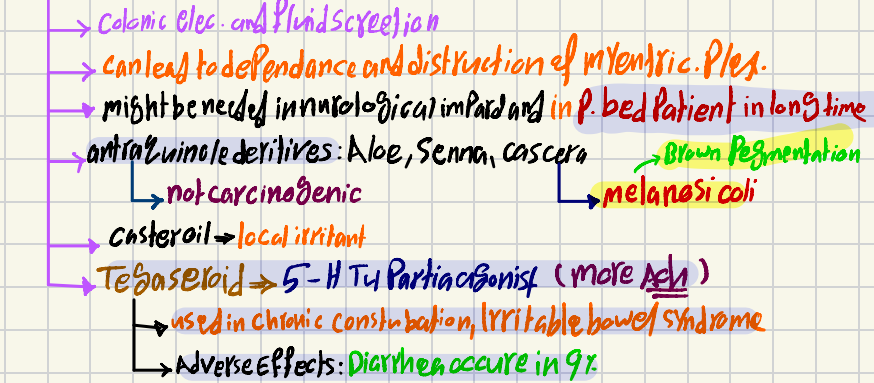 → Colonic elec. and fluid screetion
→ can lead to dependance and distruction of myentric. Plex.
→ might be needed in nurological impard and in P. bed Patient in long time
→ antraquinole deritives: Aloe, Senna, cascera → Brown Pegmentation
→ not carcinogenic → melanosi coli
→ casteroil → local irritant
→ Tegaseroid ⇒ 5-HT4 Partiacagonist (more Ach)
→ used in chronic constubation, Irritable bowel syndrome
→ Adverse Effects: Diarrhea occure in 9%